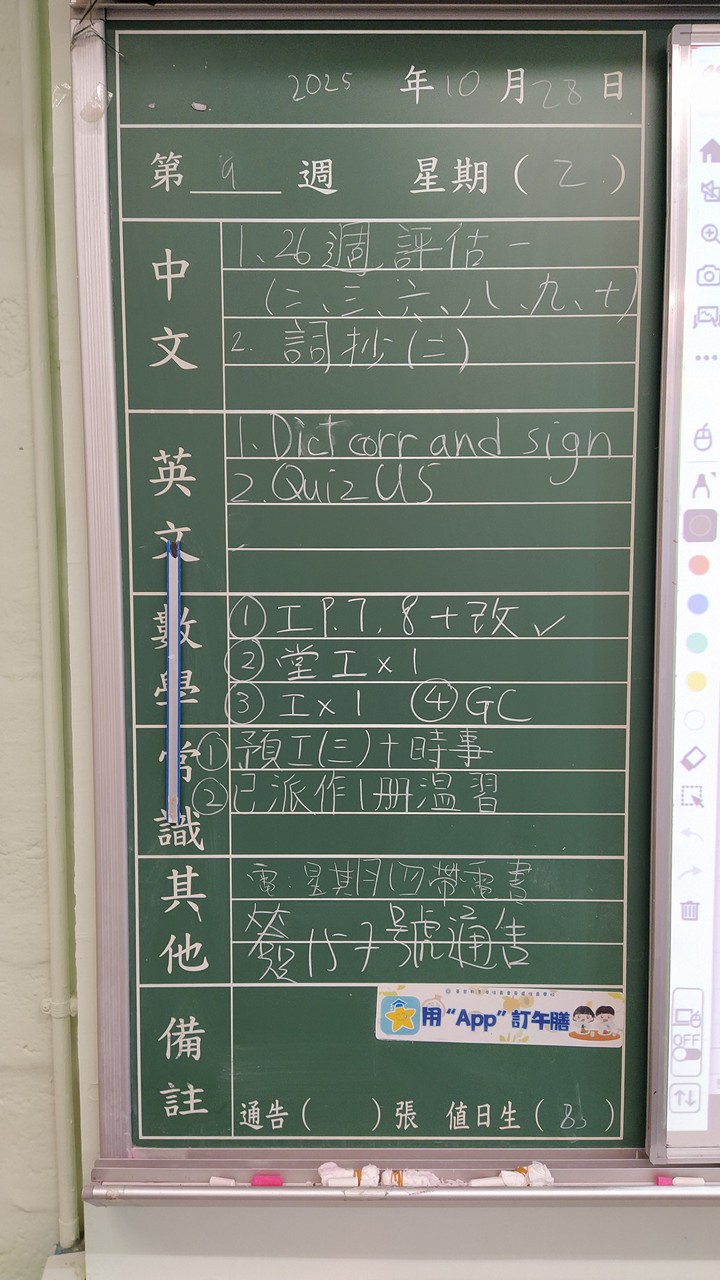 2025 年 10 月 28 日
第 9 週 星期 ( 2 )
中文
1、26週評估一
(二、三、六、八、九、十)
2. 詞抄(二)
英文
1. Dict corr and sign
2. Quiz U5
數學
① 工P.7, 8 + 改 ✓
② 堂工 x 1
③ 工 x 1 ④ GC
常識
① 預工(三)+時事
② 已派作1冊溫習
其他
電:星期四帶電書
簽157號通告
備註
用“App”訂午膳
通告 ( ) 張 值日生 ( )
OFF